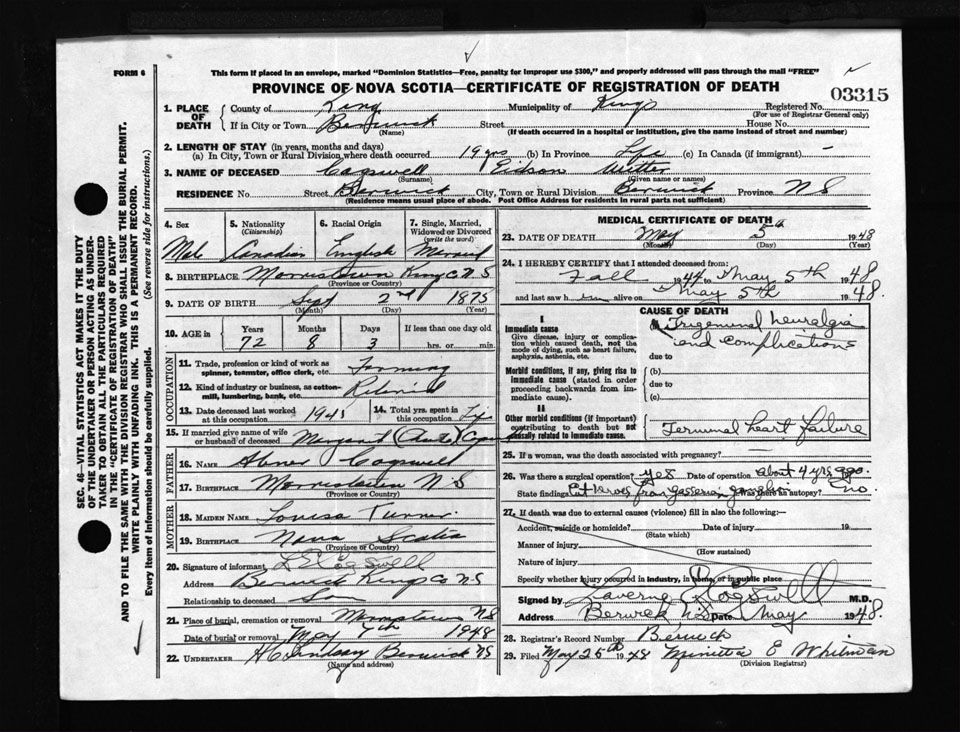 FORM 6
This form if placed in an envelope, marked "Dominion Statistics—Free, penalty for improper use $300," and properly addressed will pass through the mail "FREE"
PROVINCE OF NOVA SCOTIA—CERTIFICATE OF REGISTRATION OF DEATH
03315
1. PLACE OF DEATH County of Kings Municipality of Kings Registered No.
(For use of Registrar General only)
If in City or Town Berwick Street House No.
(Name) (If death occurred in a hospital or institution, give the name instead of street and number)
2. LENGTH OF STAY (in years, months and days)
(a) In City, Town or Rural Division where death occurred 19 yrs (b) In Province Life (c) In Canada (if immigrant) -
3. NAME OF DECEASED Cogswell Edson Witter
(Surname) (Given name or names)
RESIDENCE No. Street Berwick City, Town or Rural Division Berwick Province N S
(Residence means usual place of abode. Post Office Address for residents in rural parts not sufficient)
SEC. 46—VITAL STATISTICS ACT MAKES IT THE DUTY
OF THE UNDERTAKER OR PERSON ACTING AS UNDER-
TAKER TO OBTAIN ALL THE PARTICULARS REQUIRED
IN THE "CERTIFICATE OF REGISTRATION OF DEATH"
AND TO FILE THE SAME WITH THE DIVISION REGISTRAR WHO SHALL ISSUE THE BURIAL PERMIT.
WRITE PLAINLY WITH UNFADING INK. THIS IS A PERMANENT RECORD.
Every item of information should be carefully supplied. (See reverse side for instructions.)
4. Sex 5. Nationality (Citizenship) 6. Racial Origin 7. Single, Married, Widowed or Divorced (write the word)
Male Canadian English Married
8. BIRTHPLACE Morristown Kings Co N S
(Province or Country)
9. DATE OF BIRTH Sept 2nd 1875
(Month) (Day) (Year)
10. AGE in Years Months Days If less than one day old
72 8 3 hrs. or min.
OCCUPATION
11. Trade, profession or kind of work as spinner, teamster, office clerk, etc. Farming
12. Kind of industry or business, as cotton-mill, lumbering, bank, etc. Retired
13. Date deceased last worked at this occupation 1945 14. Total yrs. spent in this occupation Life
15. If married give name of wife or husband of deceased Margaret
FATHER
16. NAME Abner Cogswell
17. BIRTHPLACE Morristown N S
(Province or Country)
MOTHER
18. MAIDEN NAME Louisa Turner
19. BIRTHPLACE Nova Scotia
(Province or Country)
20. Signature of informant L E Cogswell
Address Berwick Kings Co N.S
Relationship to deceased Son
21. Place of burial, cremation or removal Morristown NS
Date of burial or removal May 7th 1948
22. UNDERTAKER H C Lindsay Berwick NS
(Name and address)
MEDICAL CERTIFICATE OF DEATH
23. DATE OF DEATH May 5th 1948
(Month) (Day) (Year)
24. I HEREBY CERTIFY that I attended deceased from:
Fall 1944 to May 5th 1948
and last saw him alive on May 5th 1948.
CAUSE OF DEATH
I
Immediate cause
Give disease, injury or complication which caused death, not the mode of dying, such as heart failure, asphyxia, asthenia, etc.
(a) Trigeminal neuralgia
and complications
due to
Morbid conditions, if any, giving rise to immediate cause (stated in order proceeding backwards from immediate cause).
(b)
due to
(c)
II
Other morbid conditions (if important) contributing to death but not causally related to immediate cause.
Terminal heart failure
25. If a woman, was the death associated with pregnancy? —
26. Was there a surgical operation? yes Date of operation about 4 yrs ago.
State findings Cut nerves from gasserian ganglion Was there an autopsy? no
27. If death was due to external causes (violence) fill in also the following:—
Accident, suicide or homicide? Date of injury 19
(State which)
Manner of injury
(How sustained)
Nature of injury
Specify whether injury occurred in industry, in home, or in public place
Signed by Laverne Cogswell M.D.
Address Berwick N.S Date May 1948.
28. Registrar's Record Number Berwick
29. Filed May 25th 1948 Minetta E Whitman
(Division Registrar)